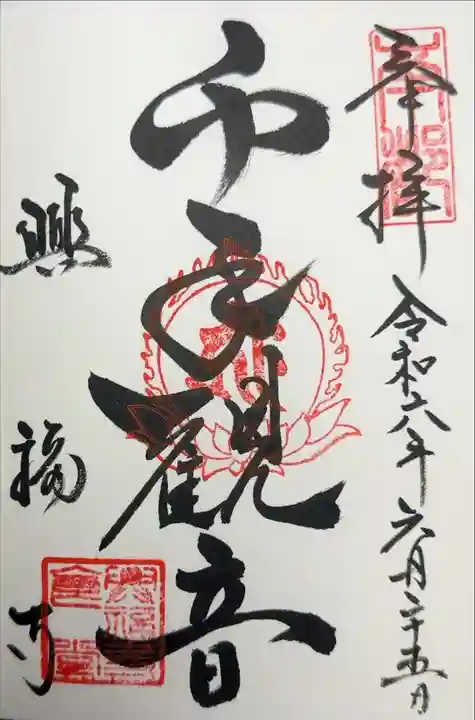 奉拝
令和六年六月二十五日
千手観音
興福寺